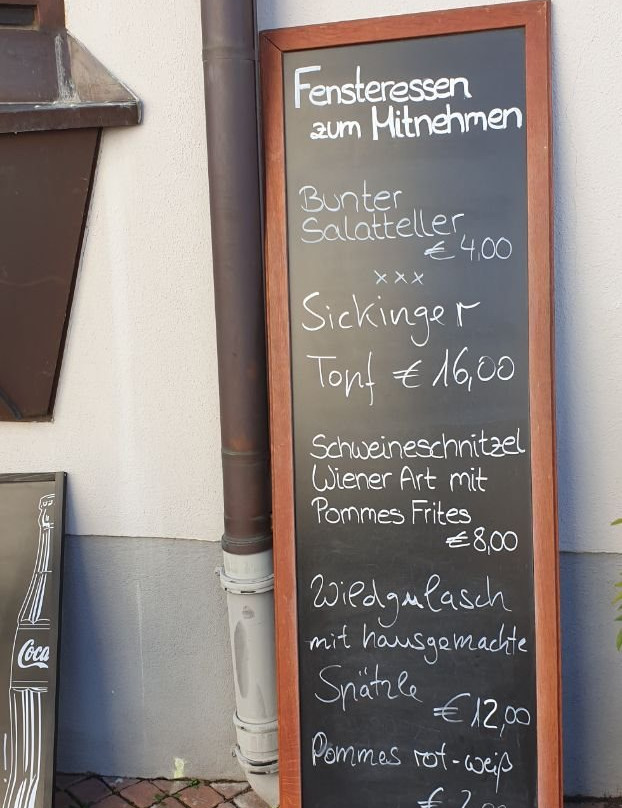 Fensteressen
zum Mitnehmen
Bunter
Salatteller
€ 4,00
xxx
Sickinger
Topf € 16,00
Schweineschnitzel
Wiener Art mit
Pommes Frites
€ 8,00
Wildgulasch
mit hausgemachte
Spätzle
€ 12,00
Pommes rot-weiß
Coca